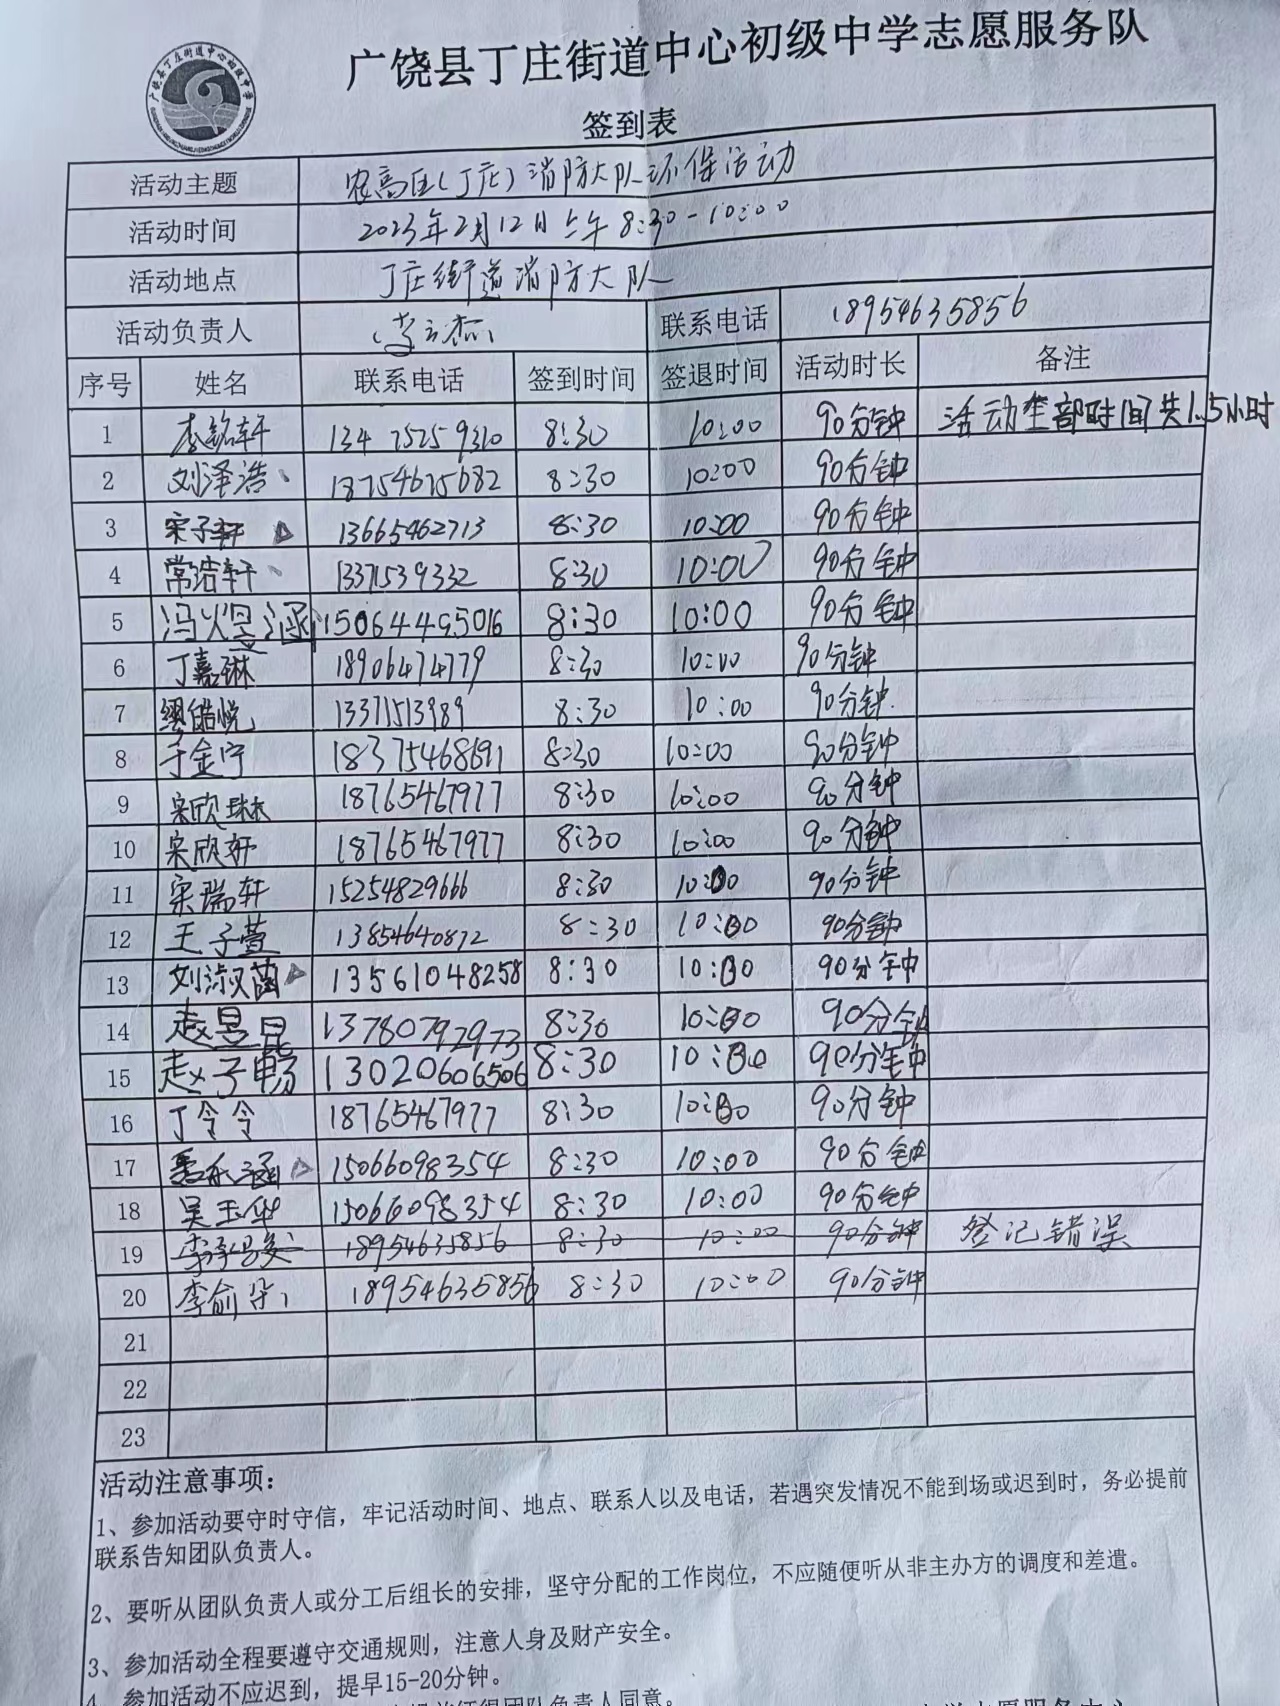 广饶县丁庄街道中心初级中学志愿服务队
签到表
广饶县丁庄街道中心初级中学
活动主题 农高区(丁庄)消防大队环保活动
活动时间 2023年2月12日上午8:30-10:00
活动地点 丁庄街道消防大队
活动负责人 联系电话 18954635856
序号 姓名 联系电话 签到时间 签退时间 活动时长 备注
1 李铭轩 134 7525 9310 8:30 10:00 90分钟 活动全部时间共1.5小时
2 刘泽浩 18754675682 8:30 10:00 90分钟
3 宋子轩 13665462713 8:30 10:00 90分钟
4 常浩轩 13371539332 8:30 10:00 90分钟
5 冯煜涵 15064495016 8:30 10:00 90分钟
6 丁嘉琳 18906474779 8:30 10:00 90分钟
7 缪皓悦 13371513989 8:30 10:00 90分钟
8 于金宁 18375468691 8:30 10:00 90分钟
9 宋欣琳 18765467977 8:30 10:00 90分钟
10 宋欣妍 18765467977 8:30 10:00 90分钟
11 宋瑞轩 15254829666 8:30 10:00 90分钟
12 王子萱 13854640872 8:30 10:00 90分钟
13 刘淑菡 13561048258 8:30 10:00 90分钟
14 赵昱昆 13780792973 8:30 10:00 90分钟
15 赵子畅 13020606506 8:30 10:00 90分钟
16 丁令令 18765467977 8:30 10:00 90分钟
17 15066098354 8:30 10:00 90分钟
18 吴玉华 15066098354 8:30 10:00 90分钟
19 18954635856 8:30 10:00 90分钟 登记错误
20 李俞朵 18954635856 8:30 10:00 90分钟
21
22
23
活动注意事项：
1、参加活动要守时守信，牢记活动时间、地点、联系人以及电话，若遇突发情况不能到场或迟到时，务必提前
联系告知团队负责人。
2、要听从团队负责人或分工后组长的安排，坚守分配的工作岗位，不应随便听从非主办方的调度和差遣。
3、参加活动全程要遵守交通规则，注意人身及财产安全。
4、参加活动不应迟到，提早15-20分钟。